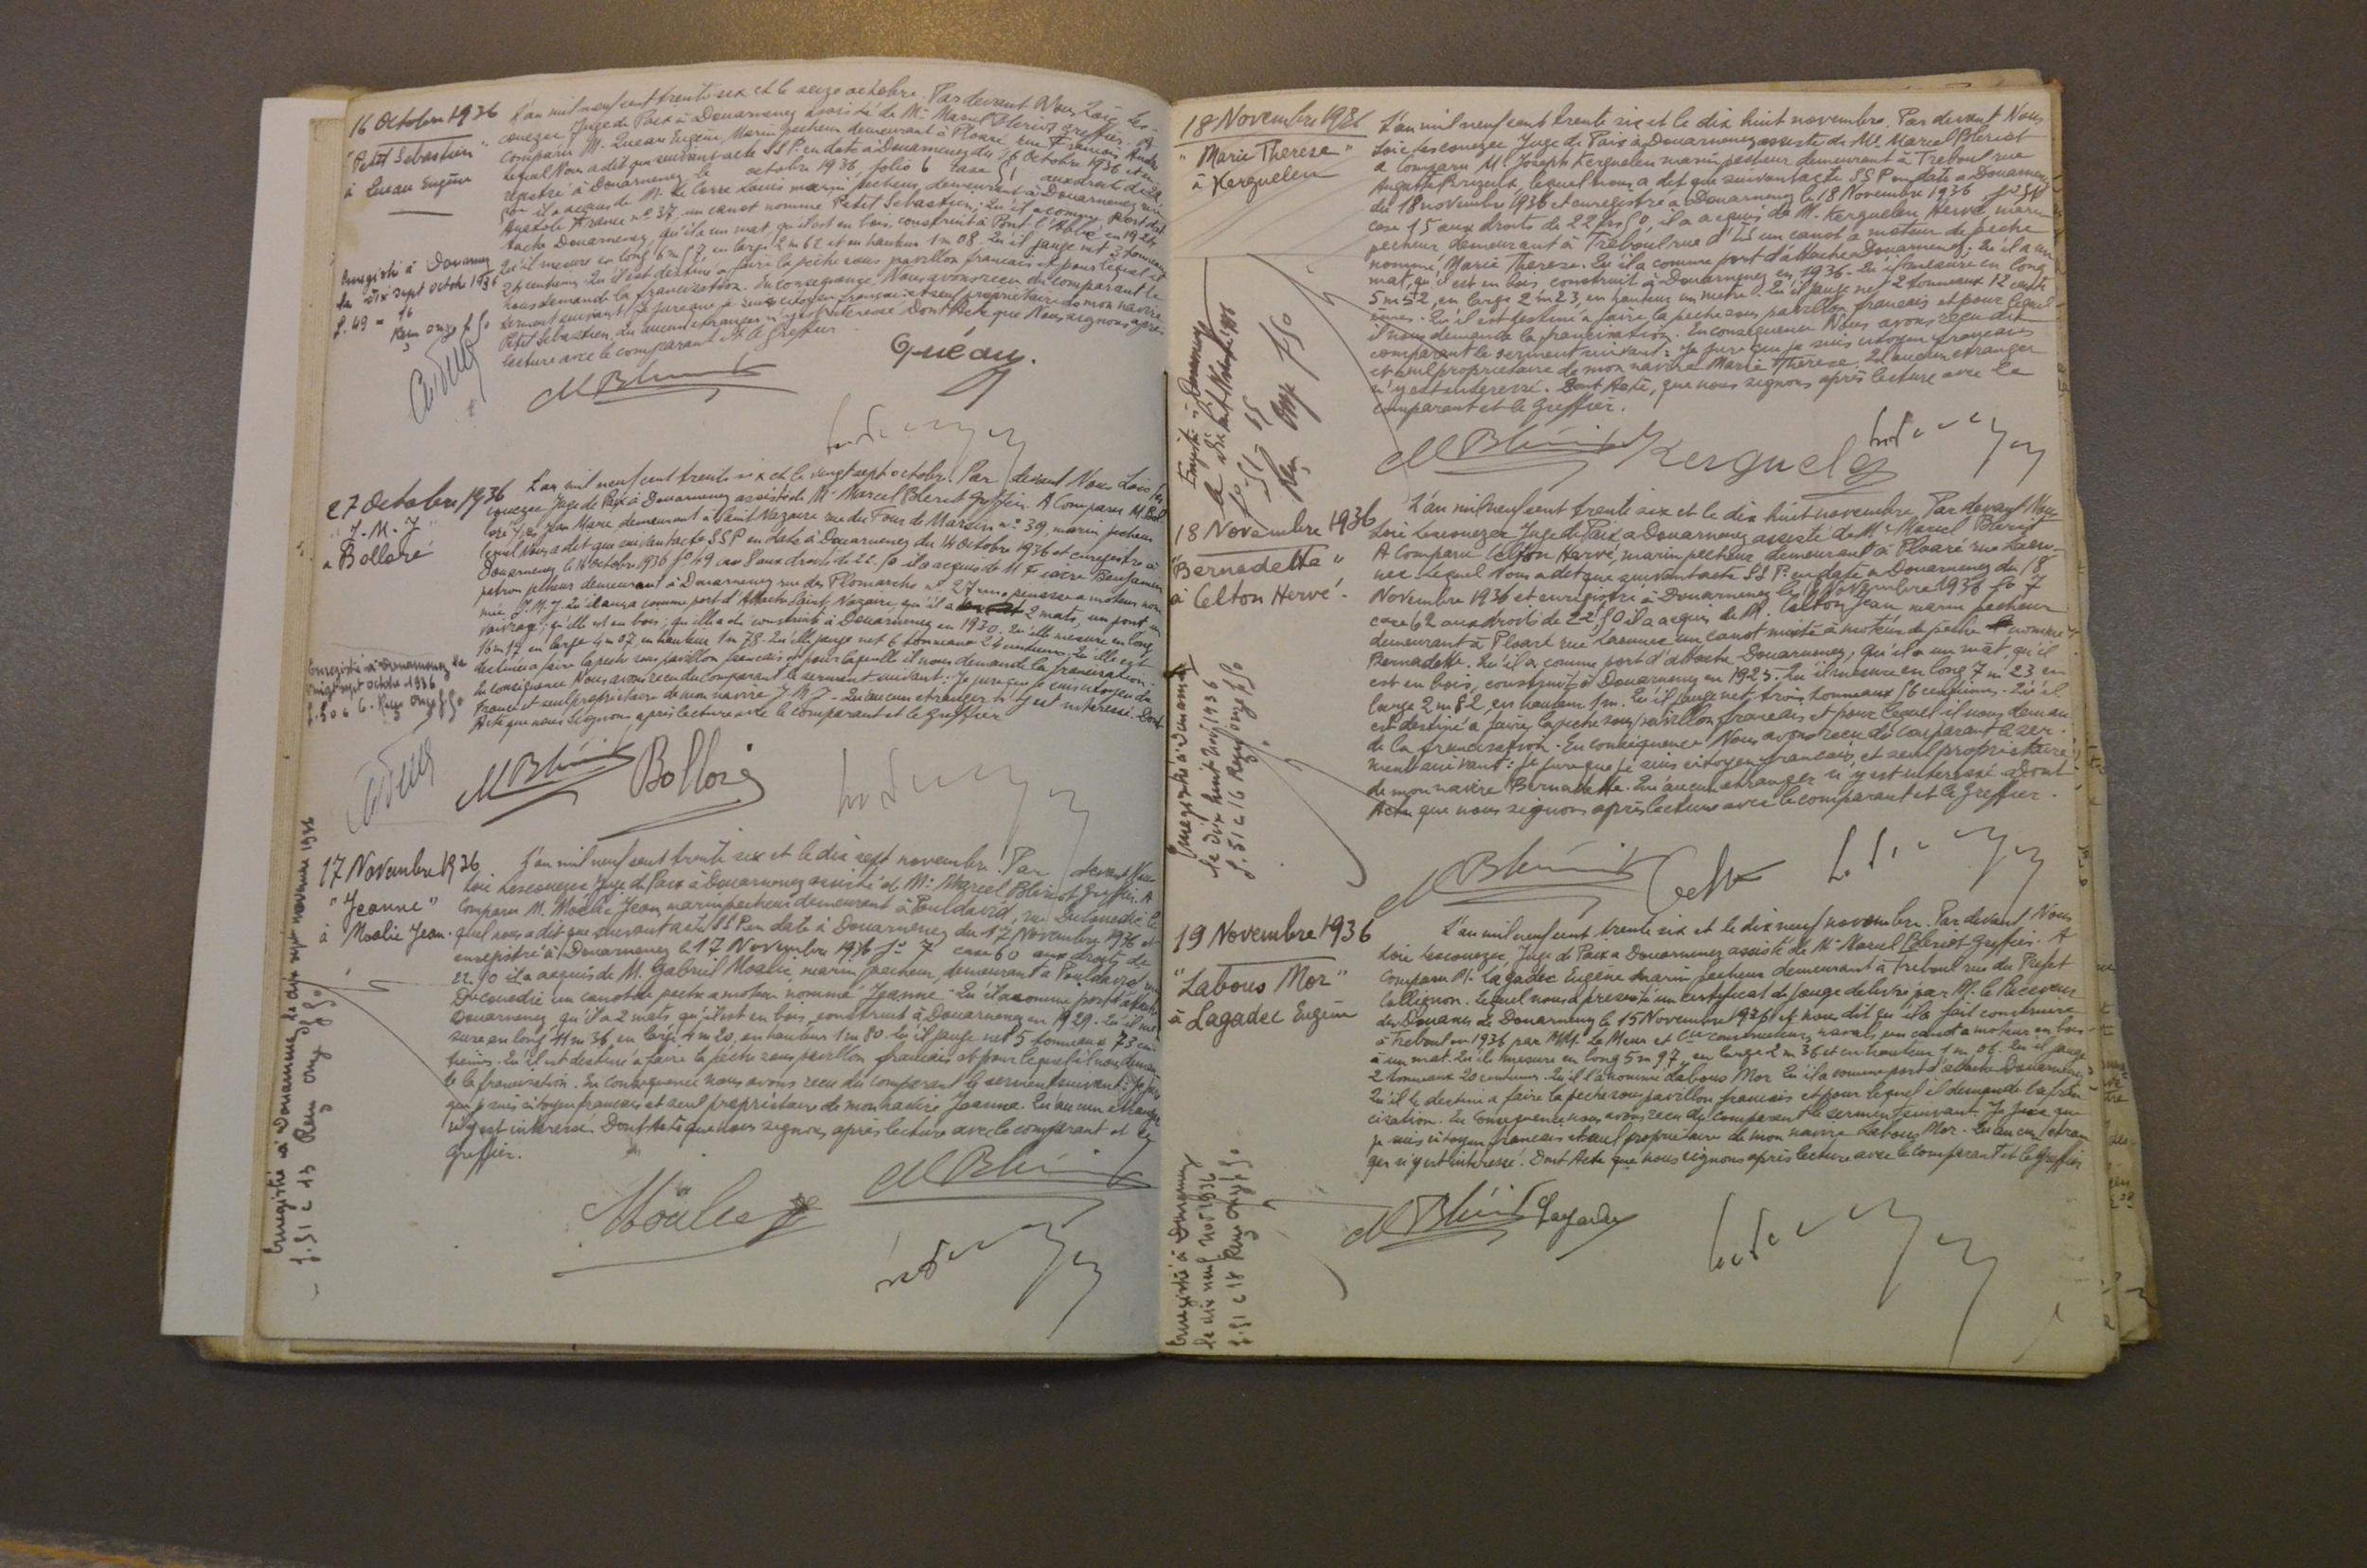 16 Octobre 1936
"Petit Sebastien"
à Queau Eugène
L'an mil neuf cent trente six et le seize octobre. Par devant Nous Loic Les-
couezec Juge de Paix à Douarnenez assisté de Me Marcel Bleriot greffier. A
Comparu M. Queau Eugène, Marin pecheur demeurant à Ploaré, rue Francois
lequel Nous a dit que suivant acte SSP. en date à Douarnenez du 16 Octobre 1936 et en
registré à Douarnenez le octobre 1936, folio 6 case 51 aux droits de 22.
50 il a acquis de M. Le Corre Louis marin pecheur, demeurant à Douarnenez rue
Anatole France no 37, un canot nommé Petit Sebastien; Qu'il a comme port d'at
tache Douarnenez, qu'il a un mat, qu'il est en bois, construit à Pont l'Abbé en 1924
Qu'il mesure en long 6m57, en large 2m62 et en hauteur 1m08. Qu'il jauge net 3 tonneaux
24 centiemes. Qu'il est destiné à faire la pêche sous pavillon francais et pour lequel il
nous demande la francisation. En consequence, Nous avons recu du comparant le
serment suivant: Je jure que je suis citoyen français et seul propriétaire de mon navire
Petit Sebastien. Qu'aucun etranger n'y est interessé Dont Acte que Nous signons après
lecture avec le comparant et le Greffier
Enregistré à Douarnenez
le dix sept octobre 1936
f. 49 c 16
Reçu onze f 50
Queau.
27 Octobre 1936
"J.M.J"
à Bolloré
L'an mil neuf cent trente six et le vingt sept octobre. Par devant Nous Loic Les
couezec Juge de Paix à Douarnenez assisté de Me Marcel Bleriot Greffier. A Comparu M. Bol
loré Yves Jean Marie demeurant à Saint Nazaire rue du Four de Marsin no 39, marin pecheur
lequel Nous a dit que suivant acte SSP en date à Douarnenez du 14 Octobre 1936 et enregistré à
Douarnenez le 16 octobre 1936 fo 49 case 8 aux droits de 22.50 il a acquis de M Benjamin
patron pecheur demeurant à Douarnenez rue des Plomarchs no 27 une pinasse a moteur nom
mée J.M.J. Qu'il aura comme port d'Attache Saint Nazaire, qu'il a 2 mats, un pont un
vaivrage; qu'elle est en bois; qu'elle a été construite à Douarnenez en 1930. Qu'elle mesure en long
16m17 en large 4m07, en hauteur 1m78. Qu'elle jauge net 6 tonneaux 24 centiemes. Qu'elle est
destinée a faire la peche sous pavillon francais et pour laquelle il nous demande la francisation.
En consequence Nous avons recu du comparant le serment suivant: Je jure que je suis citoyen de
France et seul propriétaire de mon navire J.M.J - Qu'aucun etranger n'y est interessé. Dont
Acte que nous Signons après lecture avec le comparant et le Greffier
Enregistré à Douarnenez le
vingt sept octobre 1936
f. 50 c 6. Reçu onze f. 50
Bolloré
17 Novembre 1936
"Jeanne"
à Moalic Jean.
L'an mil neuf cent trente six et le dix sept novembre. Par devant Nous
Loic Lescouezec Juge de Paix à Douarnenez assisté de Me Marcel Bleriot Greffier. A
Comparu M. Moalic Jean, marin pecheur demeurant à Pouldavid, rue Ducouedic le
quel nous a dit que suivant acte SSP en date à Douarnenez du 17 Novembre 1936 et
enregistré à Douarnenez le 17 Novembre 1936 fo 7 case 60 aux droits de
22.50 il a acquis de M. Gabriel Moalic, marin pecheur, demeurant à Pouldavid rue
Ducouedic un canot de peche a moteur nommé "Jeanne". Qu'il a comme port d'attache
Douarnenez, qu'il a 2 mats, qu'il est en bois, construit à Douarnenez en 1929. Qu'il me
sure en long 11m36, en large 4m20, en hauteur 1m80. Qu'il jauge net 5 tonneaux 73 cen
tiemes. Qu'il est destiné à faire la pêche sous pavillon francais et pour lequel il nous deman
de la francisation. En consequence nous avons recu du comparant le serment suivant: Je jure
que je suis citoyen francais et seul propriétaire de mon navire Jeanne. Qu'aucun etranger
n'y est interessé Dont Acte que nous signons après lecture avec le comparant et le
Greffier.
Enregistré à Douarnenez le dix sept novembre 1936
f. 51 c 13 Reçu onze f 50
Moalic
18 Novembre 1936
"Marie Therese"
à Kerguelen
L'an mil neuf cent trente six et le dix huit novembre. Par devant Nous
Loic Lescouezec Juge de Paix à Douarnenez assisté de Me Marcel Bleriot
a Comparu M. Joseph Kerguelen marin pecheur demeurant à Treboul rue
Auguste Brizeux, lequel nous a dit que suivant acte SSP en date à Douarnenez
du 18 novembre 1936 et enregistré à Douarnenez le 18 Novembre 1936, fo 51
case 15 aux droits de 22 frs 50, il a acquis de M. Kerguelen Hervé, marin
pecheur demeurant à Treboul rue d'Is un canot a moteur de peche
nommé, Marie Therese. Qu'il a comme port d'attache Douarnenez. Qu'il a un
mat, qu'il est en bois, construit à Douarnenez en 1936. Qu'il mesure en long
5m52, en large 2m23, en hauteur un metre. Qu'il jauge net 2 tonneaux 12 centi
èmes. Qu'il est destiné à faire la peche sous pavillon francais et pour lequel
il nous demande la francisation. En consequence Nous avons recu dit
comparant le serment suivant: Je jure que je suis citoyen français
et seul propriétaire de mon navire Marie Thérèse. Qu'aucun etranger
n'y est interessé. Dont Acte, que nous signons après lecture avec le
comparant et le Greffier.
Enregistré à Douarnenez
le dix huit Novembre 1936
fo 51 c 15
Reçu Onze f 50
Kerguelen
18 Novembre 1936
"Bernadette"
à Celton Hervé.
L'an mil neuf cent trente six et le dix huit novembre Par devant Nous
Loic Lescouezec Juge de Paix à Douarnenez assisté de Me Marcel Bleriot
A Comparu Celton Hervé, marin pecheur demeurant à Ploaré rue Laen-
nec. Lequel Nous a dit que suivant acte SSP. en date à Douarnenez du 18
Novembre 1936 et enregistré à Douarnenez le 18 Novembre 1936 fo 7
case 62 aux droits de 22,50 il a acquis de M. Celton Jean marin pecheur
demeurant à Ploaré rue Laennec un canot mixte à moteur de peche nommé
Bernadette. Qu'il a comme port d'attache Douarnenez, qu'il a un mat, qu'il
est en bois, construit à Douarnenez en 1925. Qu'il mesure en long 7m23 en
large 2m82, en hauteur 1m. Qu'il jauge net trois tonneaux 56 centiemes. Qu'il
est destiné a faire la peche sous pavillon francais et pour lequel il nous deman
de la francisation. En conséquence Nous avons recu du comparant le ser-
ment suivant: Je jure que je suis citoyen francais, et seul propriétaire
de mon navire Bernadette. Qu'aucun etranger n'y est interessé Dont
Acte que nous signons après lecture avec le comparant et le Greffier.
Enregistré à Douarnenez
le dix huit nov 1936
f. 51 c 16 Reçu onze f 50
19 Novembre 1936
"Labous Mor"
à Lagadec Eugène
L'an mil neuf cent trente six et le dix neuf novembre. Par devant Nous
Loic Lescouezec, Juge de Paix à Douarnenez assisté de Me Marcel Bleriot Greffier. A
Comparu M. Lagadec Eugène marin pecheur demeurant à Treboul rue du Prefet
Collignon. Lequel nous a presenté un certificat de jauge délivré par M. le Receveur
des Douanes de Douarnenez le 15 Novembre 1936 et nous dit qu'il a fait construire
à Treboul en 1936 par MM. Le Meur et Cie constructeurs navals, un canot a moteur en bois
à un mat. Qu'il mesure en long 5m97, en large 2m36 et en hauteur 1m,06. Qu'il jauge
2 tonneaux 20 centiemes. Qu'il l'a nommé Labous Mor Qu'il a comme port d'attache Douarnenez
Qu'il le destine a faire la peche sous pavillon francais et pour lequel il demande la fran
cisation. En consequence nous avons recu du comparant le serment suivant. Je jure que
je suis citoyen francais et seul propriétaire de mon navire Labous Mor. Qu'aucun etran
ger n'y est interessé. Dont Acte que nous signons après lecture avec le comparant et le Greffier
Enregistré à Douarnenez
le dix neuf nov 1936
f. 51 c 18 Reçu onze f 50
Lagadec